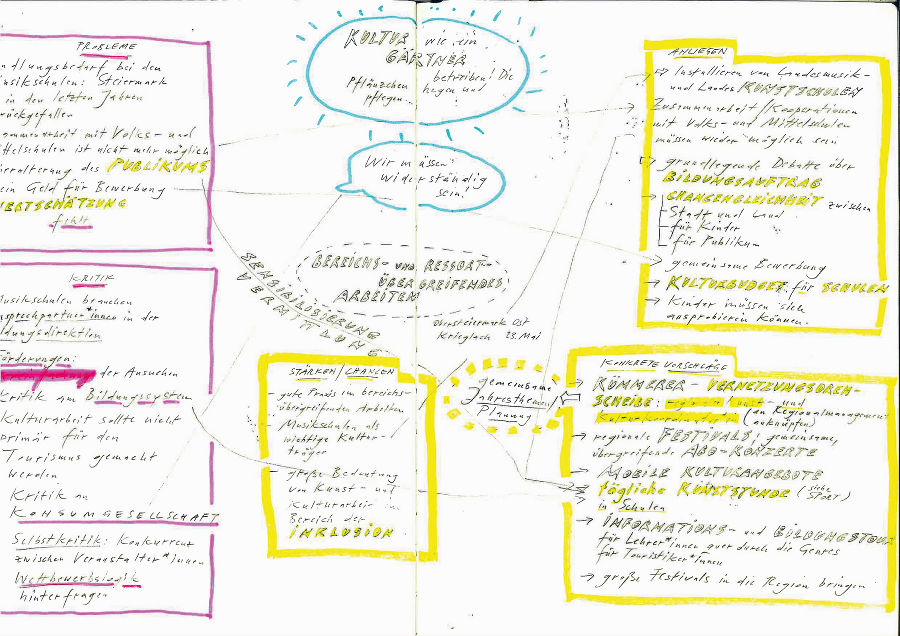 PROBLEME
ndlungsbedarf bei den
usikschulen: Steiermark
in den letzten Jahren
rückgefallen
ammenarbeit mit Volks- und
ttelschulen ist nicht mehr möglich
eralterung des PUBLIKUMS
ein Geld für Bewerbung
ERTSCHÄTZUNG
fehlt
KRITIK
usikschulen brauchen
nsprechpartner*innen in der
ldungsdirektion
örderungen:
der Ansuchen
ritik am Bildungssystem
Kulturarbeit sollte nicht
primär für den
Tourismus gemacht
werden
Kritik an
KONSUMGESELLSCHAFT
Selbstkritik: Konkurrenz
zwischen Veranstalter*innen
Wettbewerbslogik
hinterfragen
KULTUR wie ein
GÄRTNER
betreiben! Die
Pflänzchen hegen und
pflegen...
Wir müssen
widerständig
sein!
BEREICHS- UND RESSORT-
ÜBERGREIFENDES
ARBEITEN
SENSIBILISIERUNG
VERMITTLUNG
Obersteiermark Ost
Krieglach 23. Mai
STÄRKEN/CHANCEN
- gute Praxis im bereichs-
übergreifenden Arbeiten
- Musikschulen als
wichtige Kultur-
träger
- große Bedeutung
von Kunst- und
Kulturarbeit im
Bereich der
INKLUSION
gemeinsame
Jahresthemen
Planung
ANLIEGEN
→ Installieren von Landesmusik-
und Landes KUNSTSCHULEN
Zusammenarbeit/Kooperationen
mit Volks- und Mittelschulen
müssen wieder möglich sein
→ grundlegende Debatte über
BILDUNGSAUFTRAG
→ CHANCENGLEICHHEIT zwischen
- Stadt und Land
- für Kinder
- für Publikum
→ gemeinsame Bewerbung
→ KULTURBUDGET für SCHULEN
→ Kinder müssen sich
ausprobieren können.
KONKRETE VORSCHLÄGE
→ KÜMMERER- VERNETZUNGSDREH-
SCHEIBE: regionale Kunst- und
Kulturkoordinator*in (an Regionalmanagement
anknüpfen)
→ regionale FESTIVALS, gemeinsame,
übergreifende ABO-KONZERTE
→ MOBILE KULTURANGEBOTE
→ tägliche KUNSTSTUNDE (siehe
SPORT)
in Schulen
→ INFORMATIONS- und BILDUNGSTOUR
für Lehrer*innen quer durch die Genres
für Touristiker*innen
→ große Festivals in die Region bringen